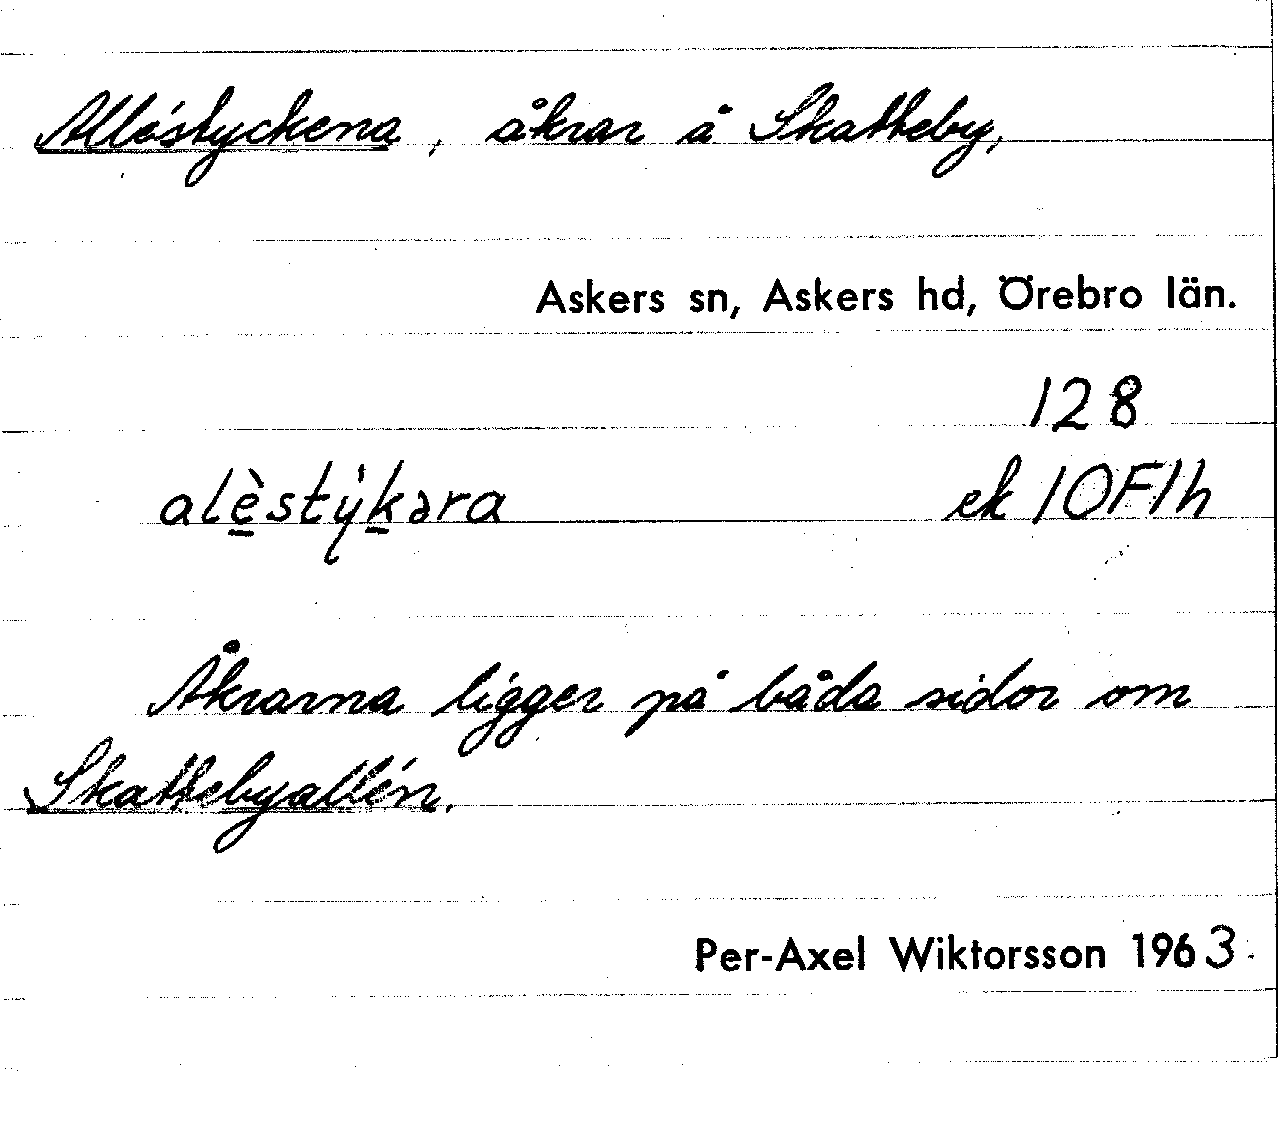 Alléstyckena, åkrar å Skatteby,
Askers sn, Askers hd, Örebro län.
128
alèstýkəra ek 10F1h
Åkrarna ligger på båda sidor om
Skattebyallén.
Per-Axel Wiktorsson 1963.